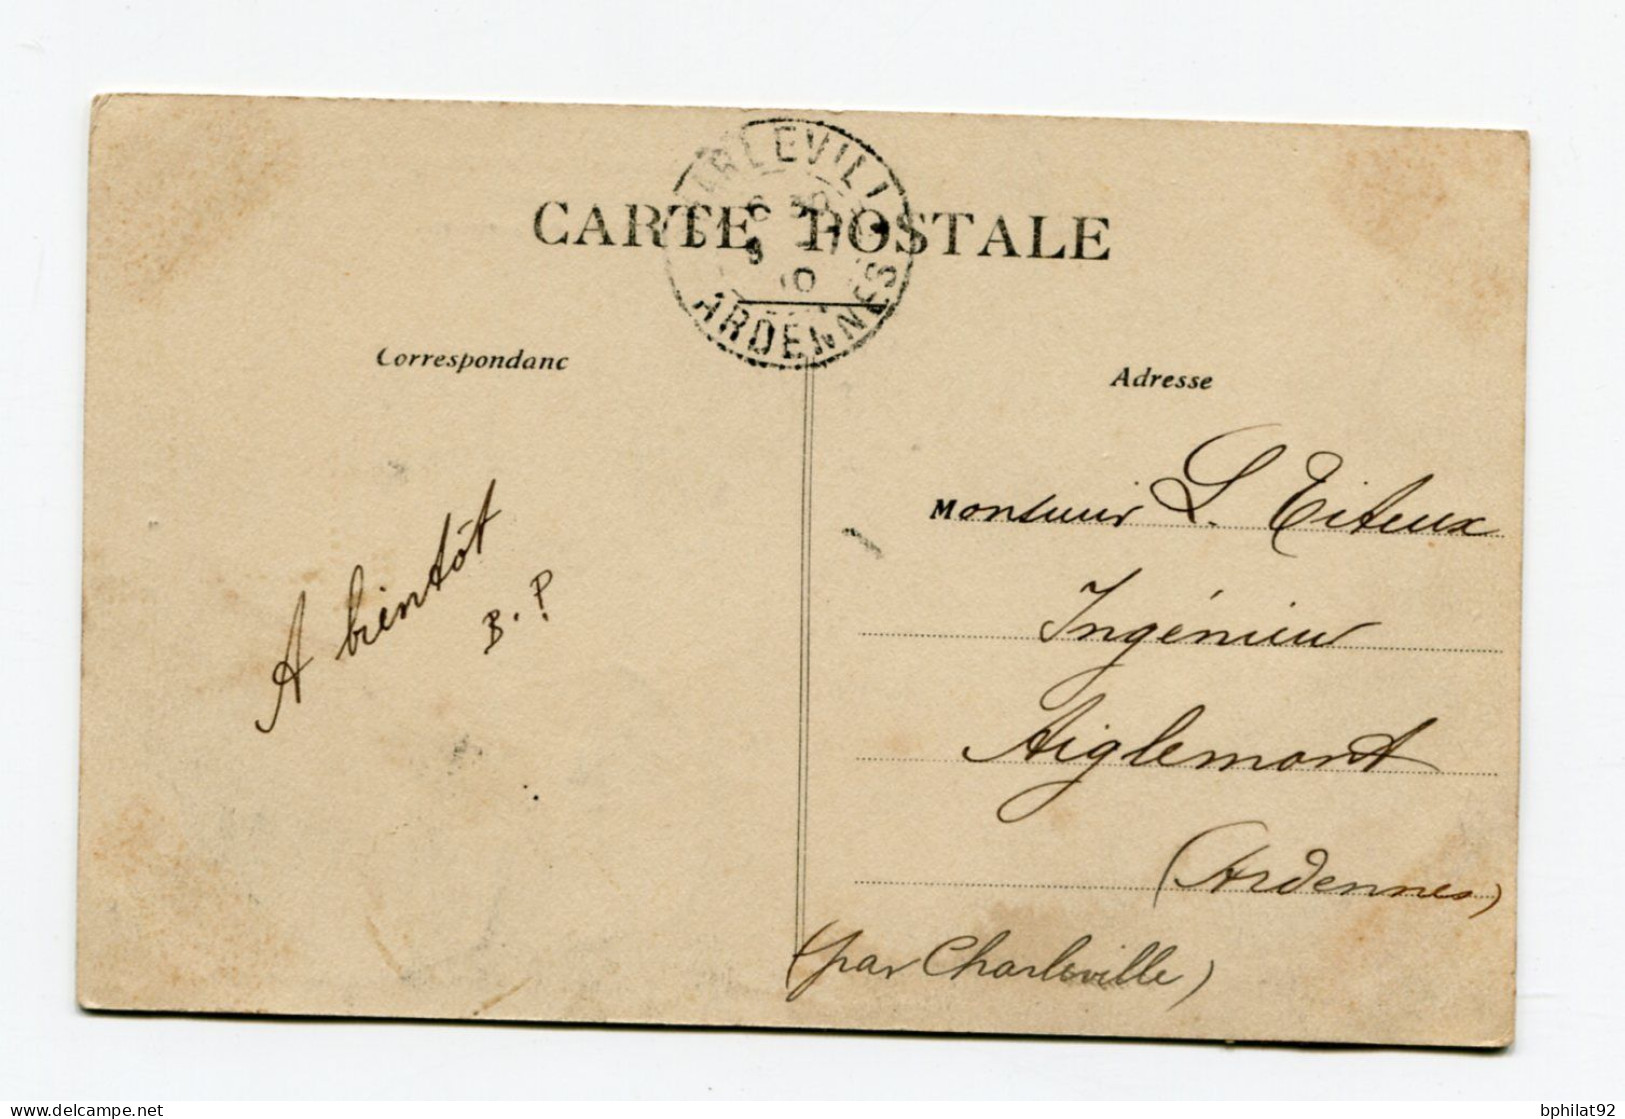 CARTE POSTALE
ARDENNES
Correspondanc
Adresse
A bientôt
B. P.
Monsieur L. Titeux
Ingénieur
Aiglemont
(Ardennes)
(par Charleville)
delcampe.net
bphilat92